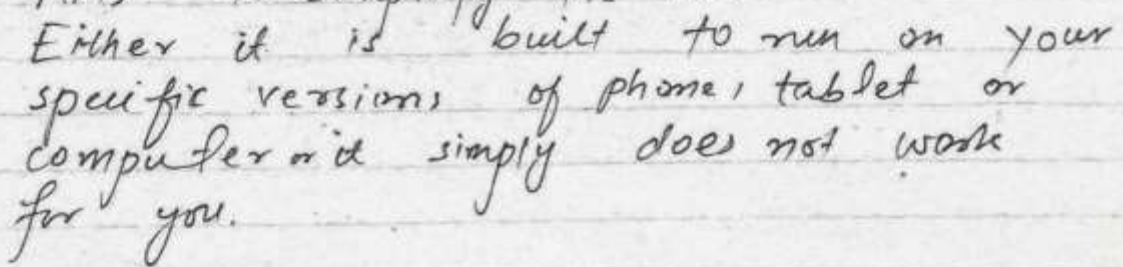 Either it is built to run on your
specific versions of phone, tablet or
computer or it simply does not work
for you.